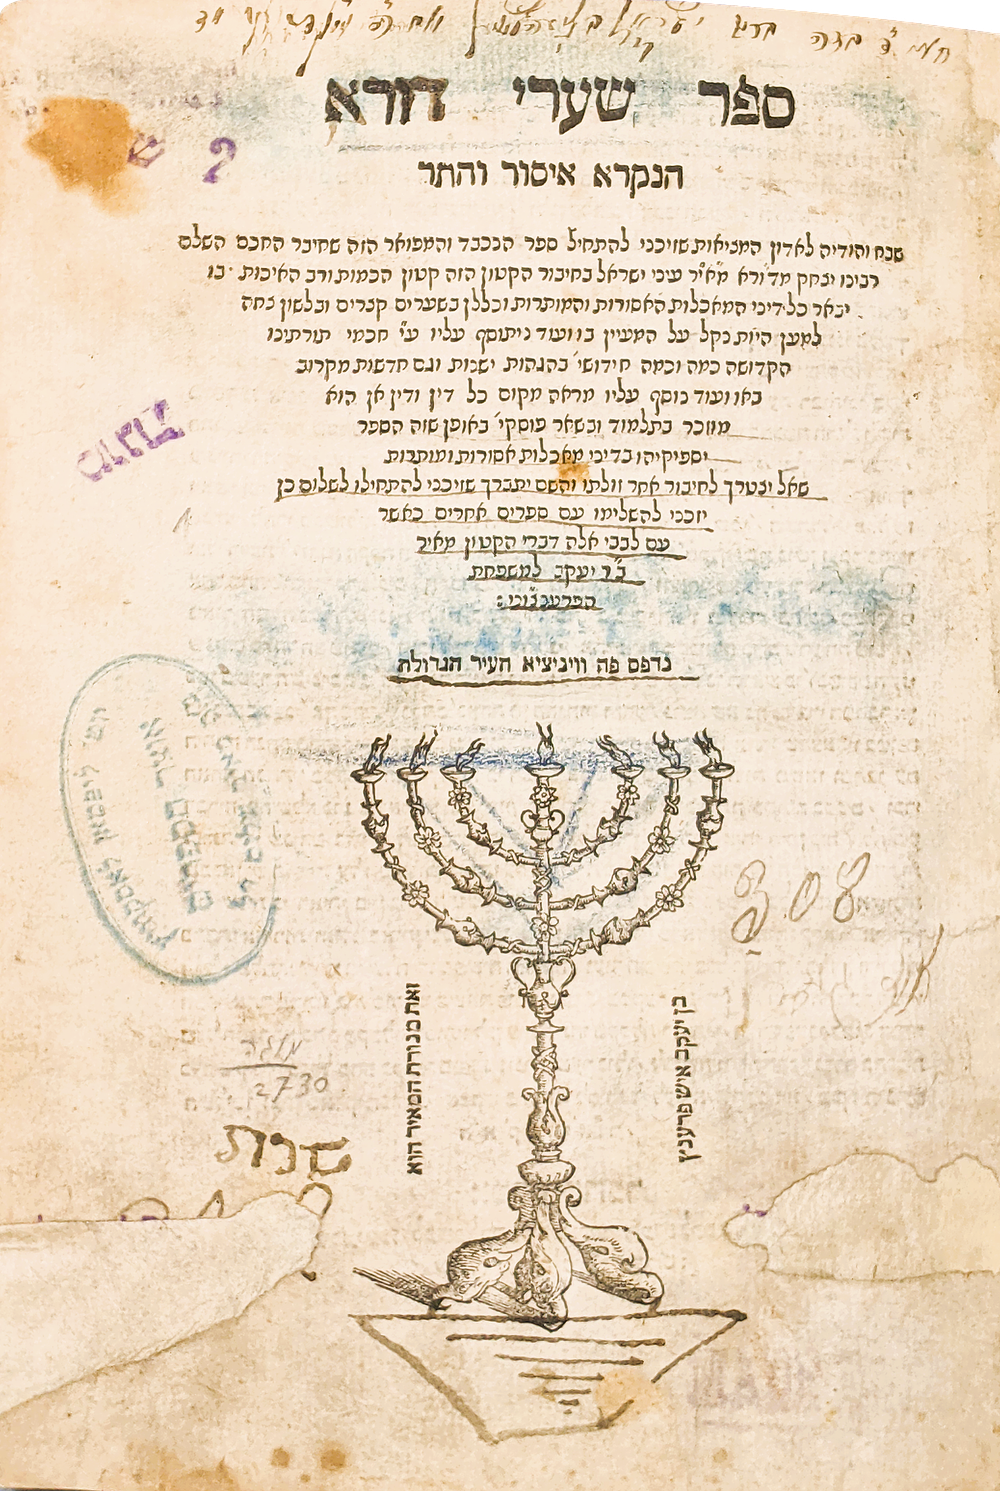 ספר שערי דורא
הנקרא איסור והתר
שבח והודיה לאדון המציאות שזיכני להתחיל ספר הנכבד והמפואר הזה שחיבר החכם השלם
רבינו יצחק מדורא מא"ור עיני ישראל בחיבור הקטון הזה קטון הכמות ורב האיכות בו
יבאר כל דיני המאכלות האסורות והמותרות וכללן בשערים קצרים ובלשון צחה
למען היות נקל על המעיין בו ועוד ניתוסף עליו ע"י חכמי תורתינו
הקדושה כמה וכמה חידושי' בהגהות ישנות וגם חדשות מקרוב
באו ועוד נוסף עליו מראה מקום כל דין ודין אן הוא
מוזכר בתלמוד ובשאר פוסקי' באופן שזה הספר
יספיקיהו בדיני מאכלות אסורות ומותרות
שאל יצטרך לחיבור אחר זולתו והשם יתברך שזיכני להתחילו לשלום כן
יזכני להשלימו עם ספרים אחרים כאשר
עם לבבי אלה דברי הקטון מאיר
ב"ר יעקב למשפחת
הפרענצוני:
נדפס פה וויניציא העיר הגדולה
308
וזאת מנורת המאיר הוא
בן יעקב איש פרענץ
מוגה
2730